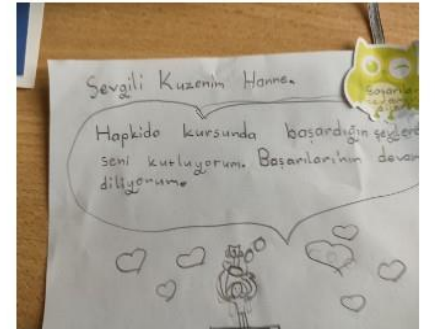 Sevgili Kuzenim Hanne.
Hapkido kursunda başardığın şeylerd
seni kutluyorum. Başarılarının devam
diliyorum.